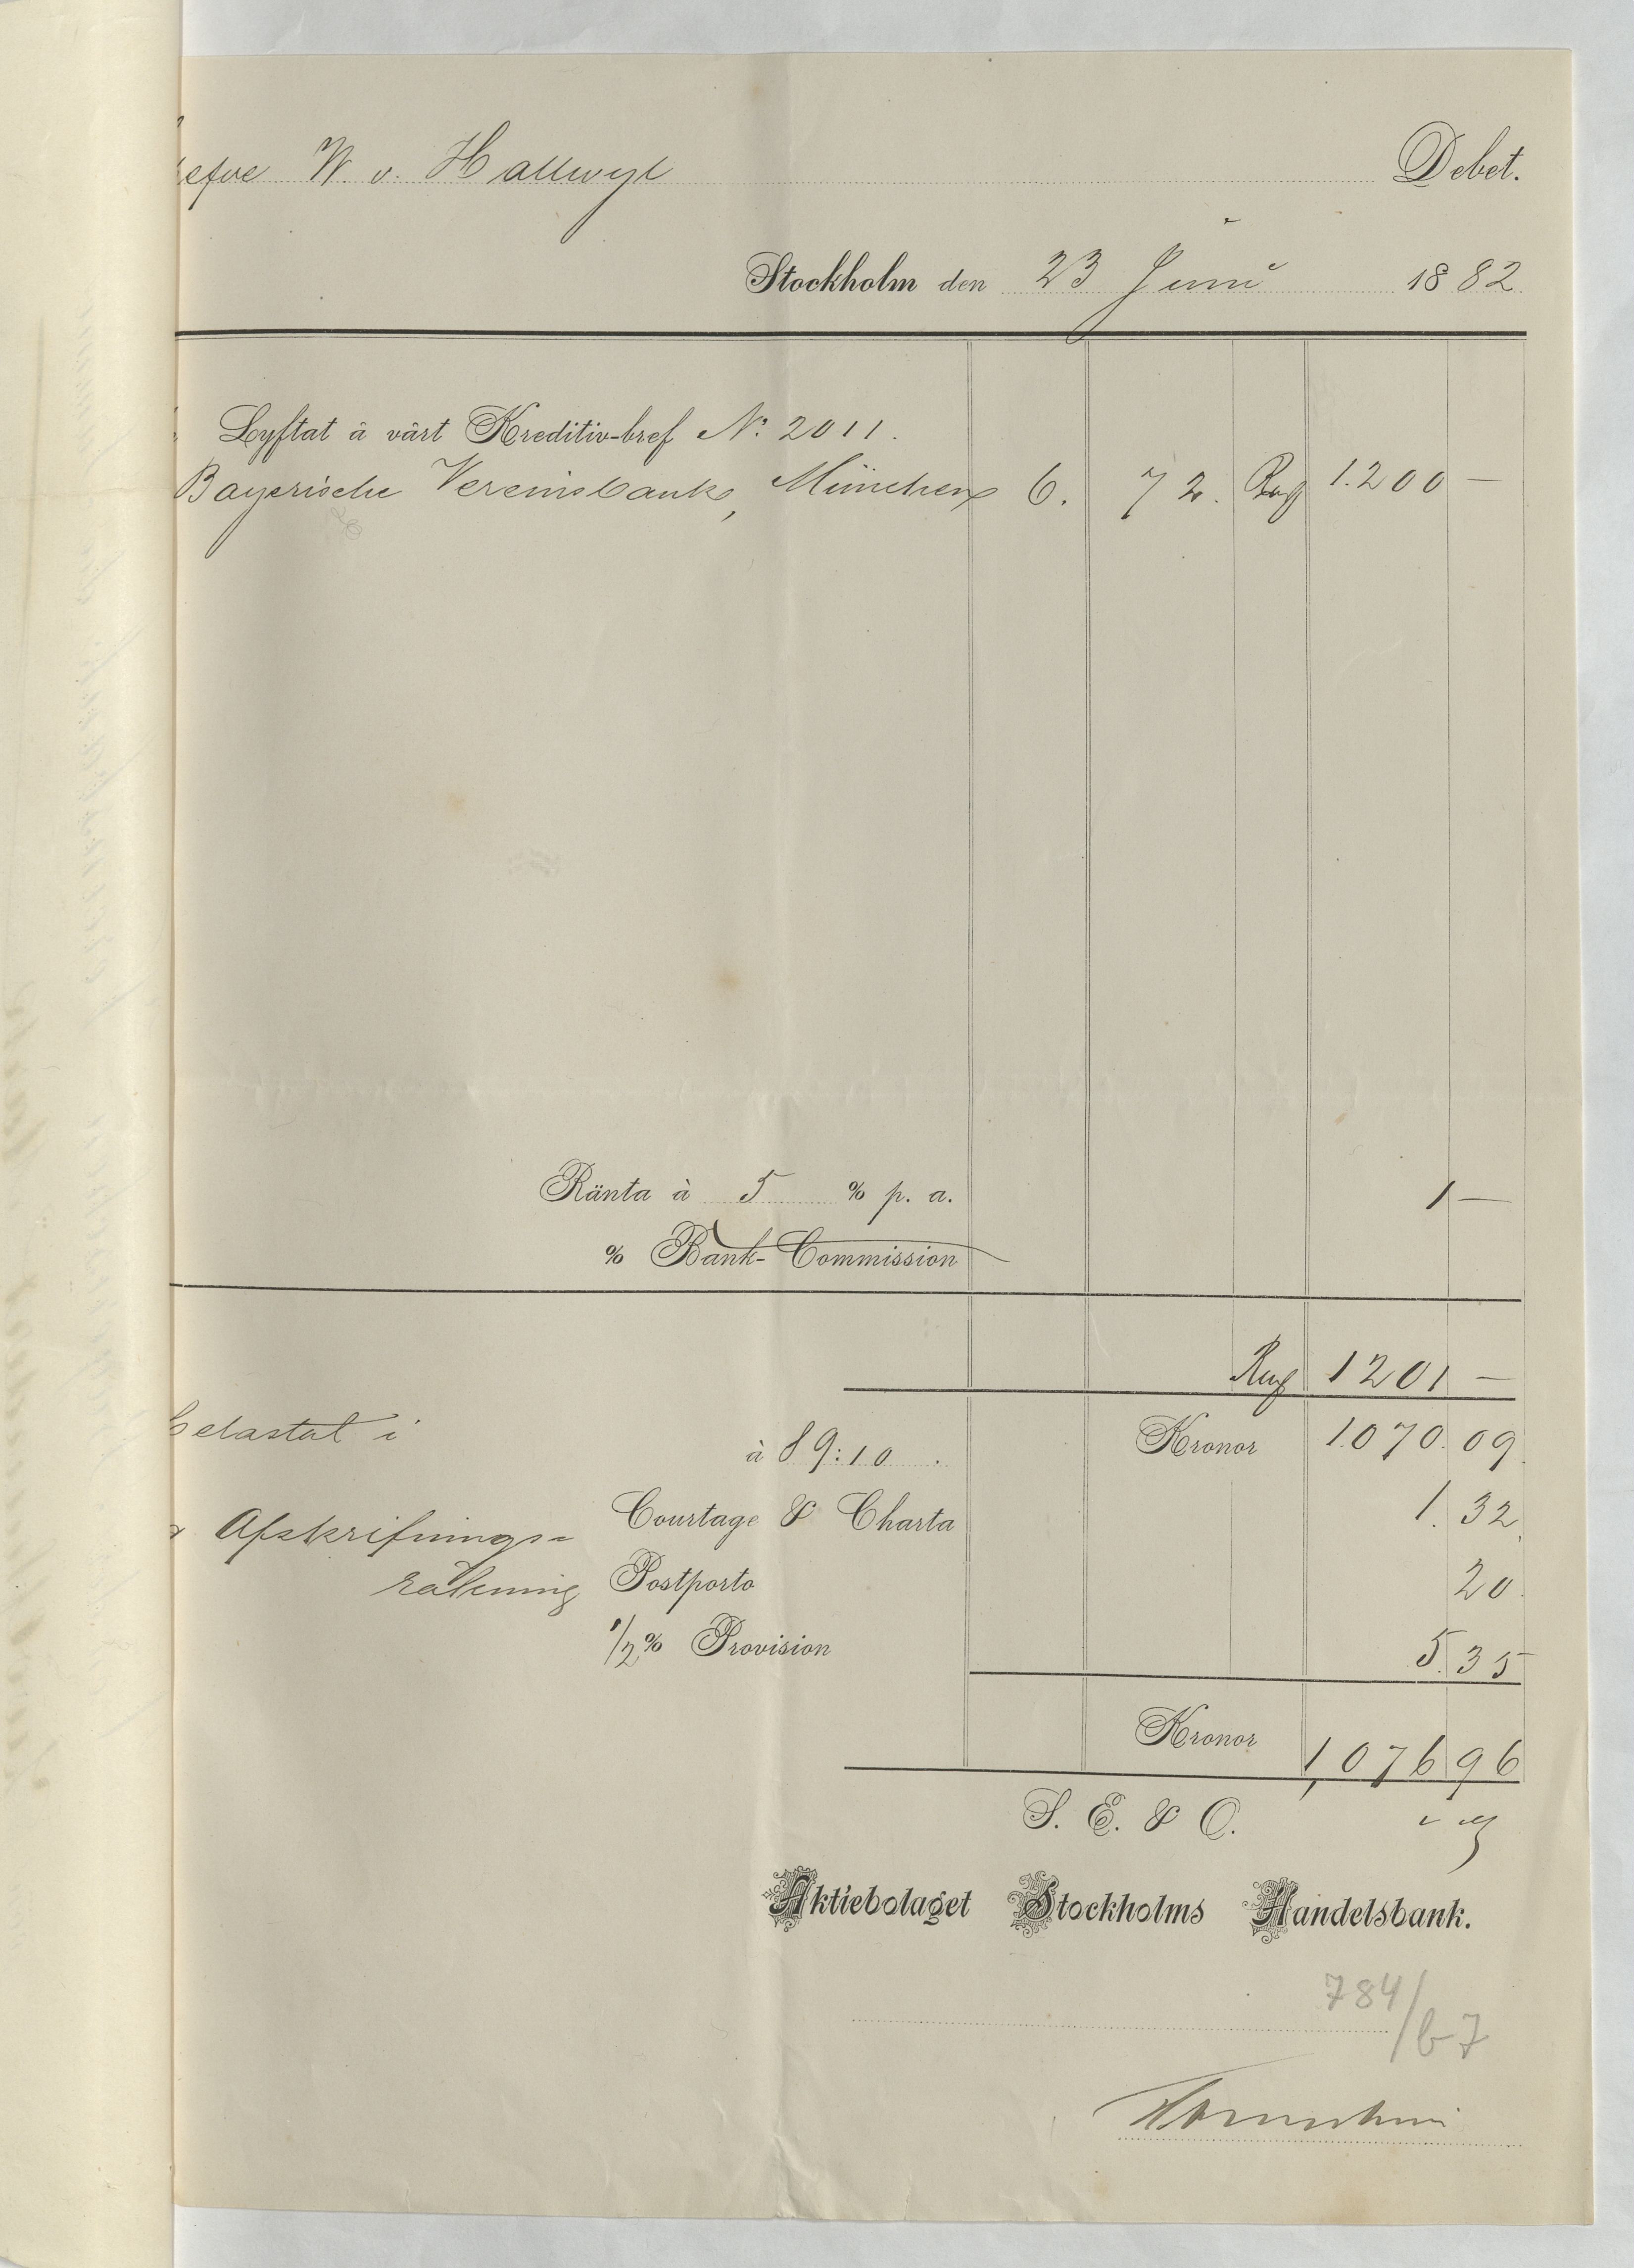 efve W. v. Hallwyl Debet.
Stockholm den 23 Juni 1882.
Lyftat å vårt Kreditiv-bref No. 2011.
Bayerische Vereinsbank, München 6. 72. Rmk 1.200 —
Ränta à 5 % p. a. 1 —
% Bank-Commission
Rmk 1201 —
belastat i à 89:10. Kronor 1.070.09.
Courtage & Charta 1.32.
Afskrifnings=
räkning Postporto 20.
1/2% Provision 5.35
Kronor 1,07696
S. E. & O.
Aktiebolaget Stockholms Handelsbank.
784/b7